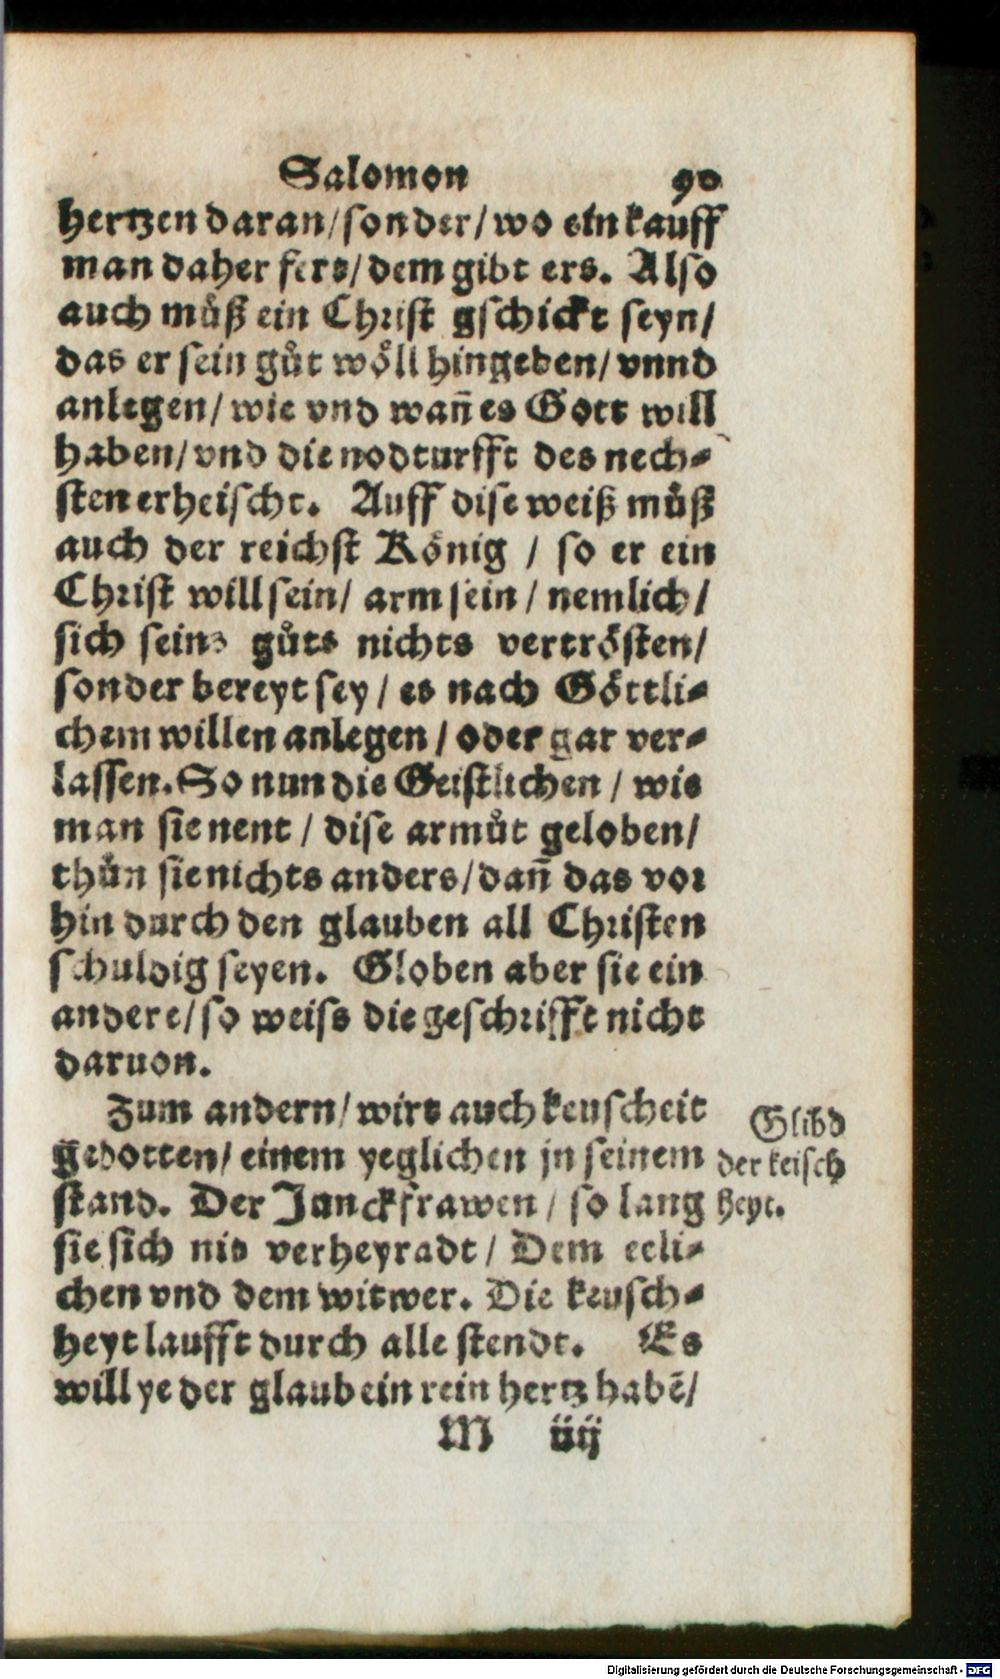 Salomon 90
hertzen daran/sonder/wo ein kauff
man daher fert/dem gibt ers. Also
auch můß ein Christ gschickt seyn/
das er sein gůt wöll hingeben/vnnd
anlegen/wie vnd wañ es Gott will
haben/vnd die nodturfft des nech⸗
sten erheischt. Auff dise weiß můß
auch der reichst König / so er ein
Christ will sein/ arm sein / nemlich/
sich seins gůts nichts vertrösten/
sonder bereyt sey / es nach Göttli⸗
chem willen anlegen / oder gar ver⸗
lassen. So nun die Geistlichen / wie
man sie nent / dise armůt geloben/
thůn sie nichts anders/dañ das vor
hin durch den glauben all Christen
schuldig seyen. Globen aber sie ein
andere/so weiss die geschrifft nicht
daruon.
Zum andern/wirt auch keuscheit
gebotten/einem yeglichen jn seinem
stand. Der Junckfrawen / so lang
sie sich nit verheyradt/ Dem eeli⸗
chen vnd dem witwer. Die keusch⸗
heyt laufft durch alle stendt. Es
will ye der glaub ein rein hertz habē/
M iiij
Glibd
der keisch
heyt.
Digitalisierung gefördert durch die Deutsche Forschungsgemeinschaft - DFG